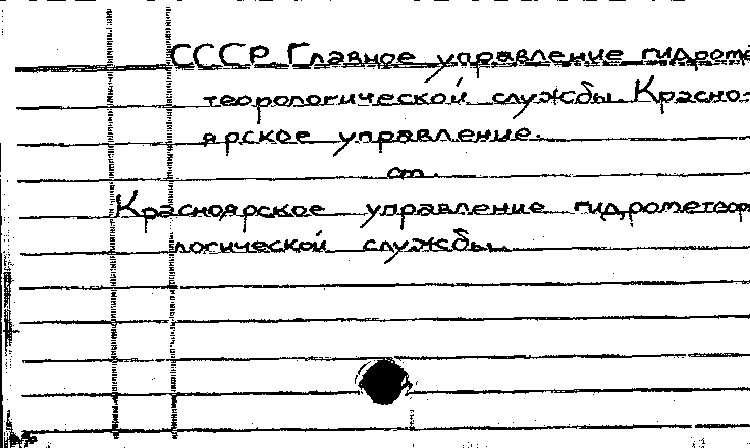 СССР. Главное управление гидроме
теорологической службы. Красно-
ярское управление.
см.
Красноярское управление гидрометеоро
логической службы.